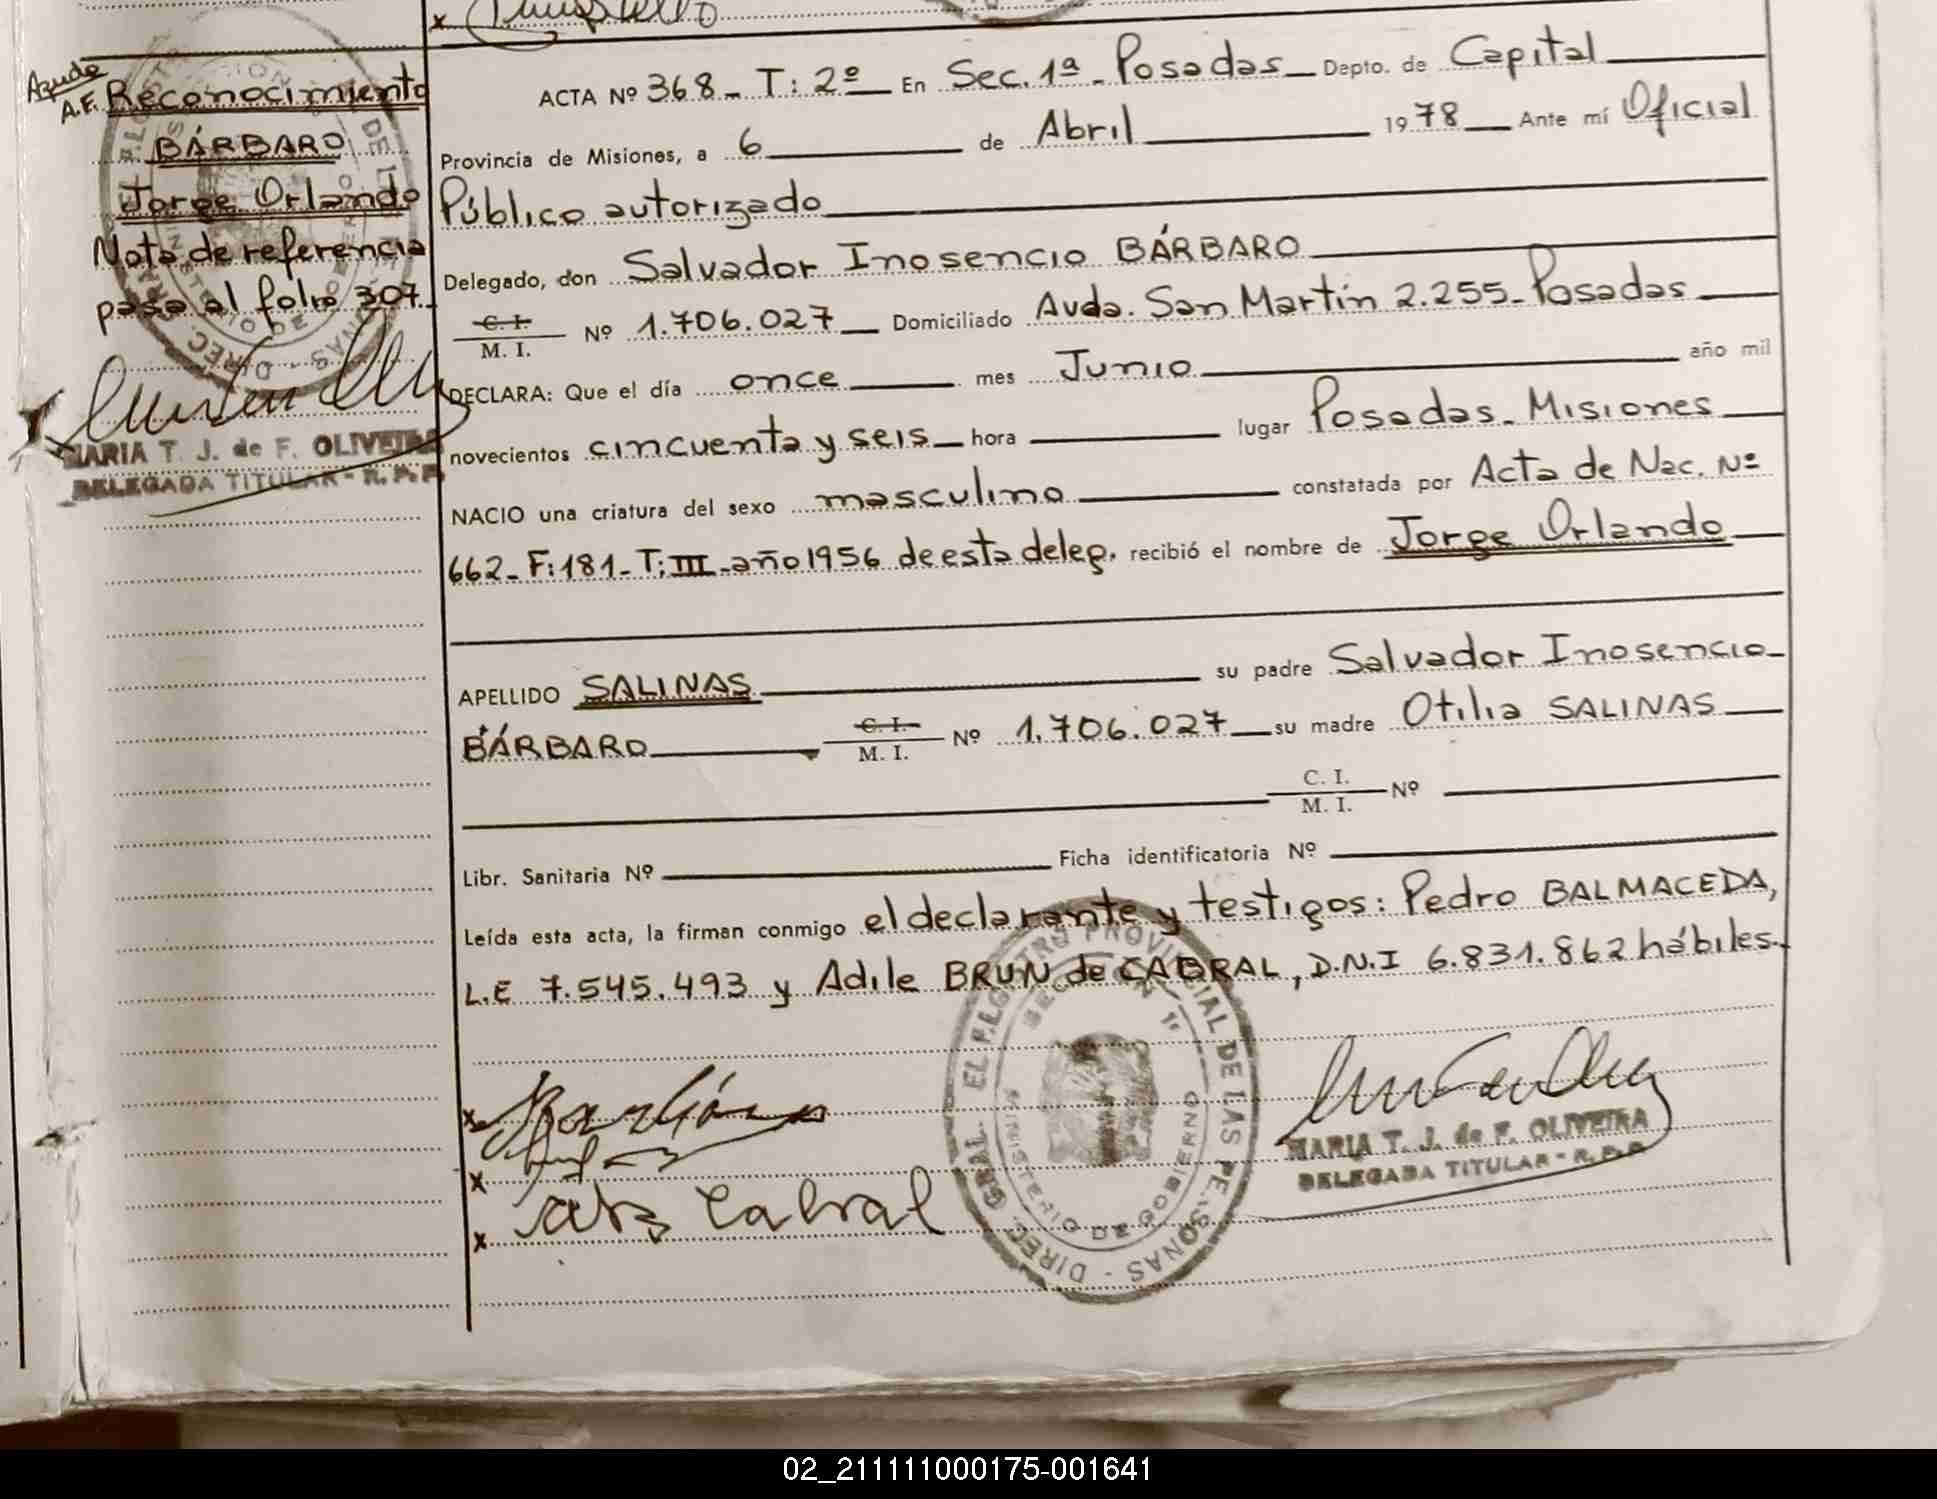 Reconocimiento
BÁRBARO
Jorge Orlando
Nota de referencia
pasa al folio 307.
MARIA T. J. de F. OLIVEIRA
DELEGADA TITULAR - R.P.P.
ACTA Nº 368 - T: 2º En Sec. 1ª - Posadas Depto. de Capital
Provincia de Misiones, a 6 de Abril 1978 Ante mí Oficial
Público autorizado
Delegado, don Salvador Inosencio BÁRBARO
C. I.
M. I. Nº 1.706.027 Domiciliado Avda. San Martín 2.255 - Posadas
DECLARA: Que el día once mes Junio año mil
novecientos cincuenta y seis hora lugar Posadas - Misiones
NACIO una criatura del sexo masculino constatada por Acta de Nac. Nº
662 - F: 181 - T: III - año 1956 de esta deleg. recibió el nombre de Jorge Orlando
APELLIDO SALINAS su padre Salvador Inosencio
BÁRBARO C. I.
M. I. Nº 1.706.027 su madre Otilia SALINAS
C. I.
M. I. Nº
Libr. Sanitaria Nº Ficha identificatoria Nº
Leída esta acta, la firman conmigo el declarante y testigos: Pedro BALMACEDA,
L.E 7.545.493 y Adile BRUN de CABRAL, D.N.I 6.831.862 hábiles.
Cabral
DIREC. GRAL. EL REGISTRO PROVINCIAL DE LAS PERSONAS
SECCION 1ª
MINISTERIO DE GOBIERNO
MARIA T. J. de F. OLIVEIRA
DELEGADA TITULAR - R.P.P.
02_211111000175-001641